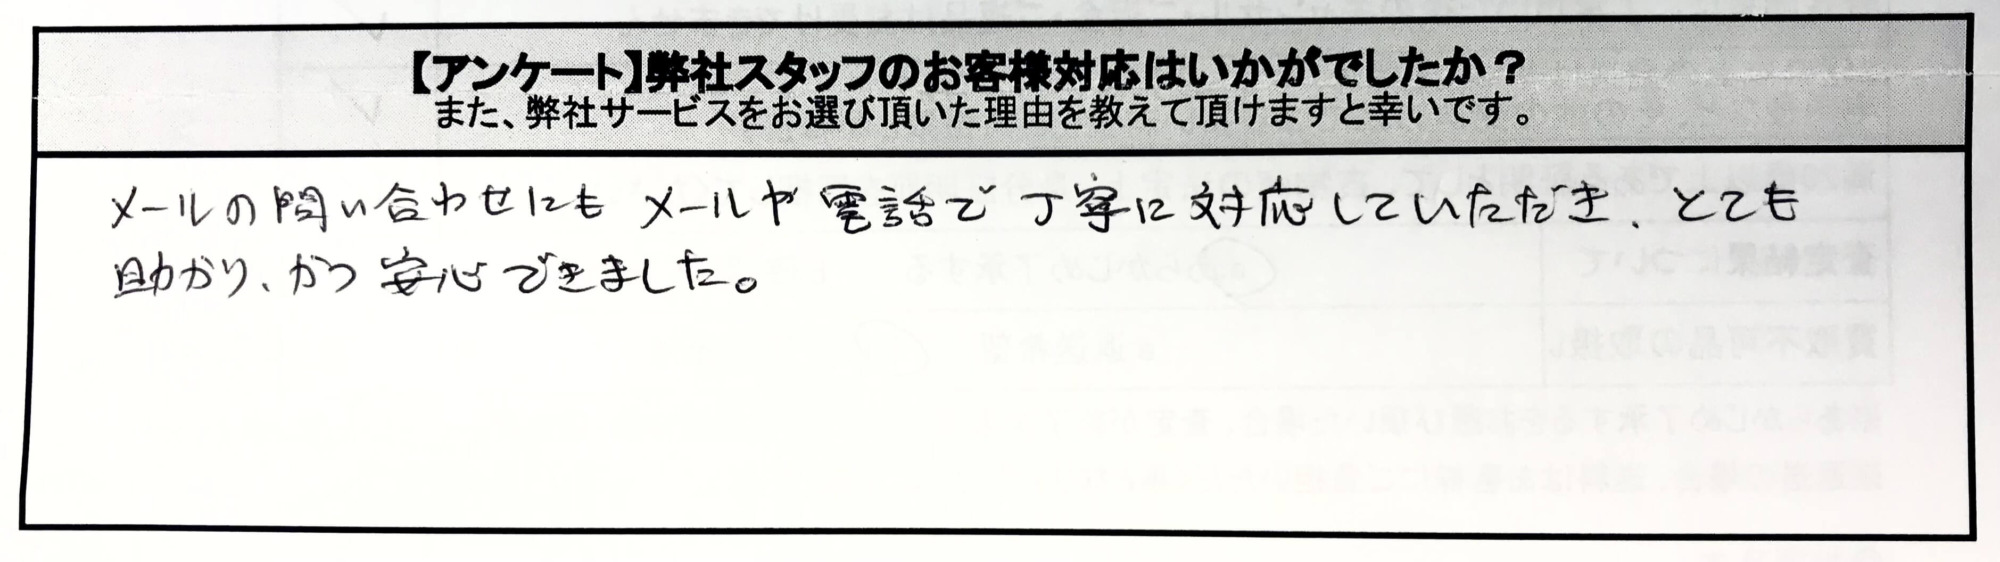 【アンケート】弊社スタッフのお客様対応はいかがでしたか？
また、弊社サービスをお選び頂いた理由を教えて頂けますと幸いです。
メールの問い合わせにもメールや電話で丁寧に対応していただき、とても
助かり、かつ安心できました。